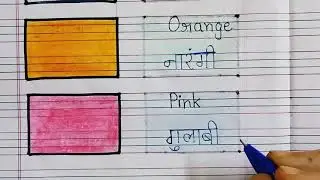 Orange
नारंगी
Pink
गुलाबी